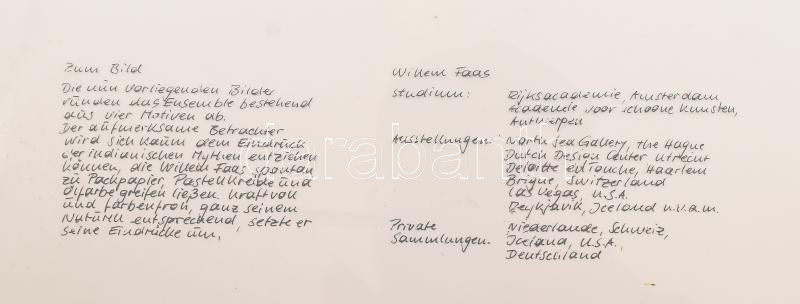 Zum Bild
Die nun vorliegenden Bilder
runden das Ensemble bestehend
aus vier Motiven ab.
Der aufmerksame Betrachter
wird sich kaum dem Eindruck
der indianischen Mythen entziehen
können, die Willem Faas spontan
zu Packpapier, Pastellkreide und
Ölfarbe greifen ließen. Kraftvoll
und farbenfroh, ganz seinem
Naturell entsprechend, setzte er
seine Eindrücke um.
Willem Faas
Studium: Rijksacademie, Amsterdam
Academie voor schoone Kunsten,
Antwerpen
Ausstellungen: North Sea Gallery, the Hague
Dutch Design Center Utrecht
Deloitte en Touche, Haarlem
Brigue, Switzerland
Las Vegas, U.S.A.
Reykjavik, Iceland u.v.a.m.
Private Niederlande, Schweiz,
Sammlungen. Iceland, U.S.A.,
Deutschland
darabanth